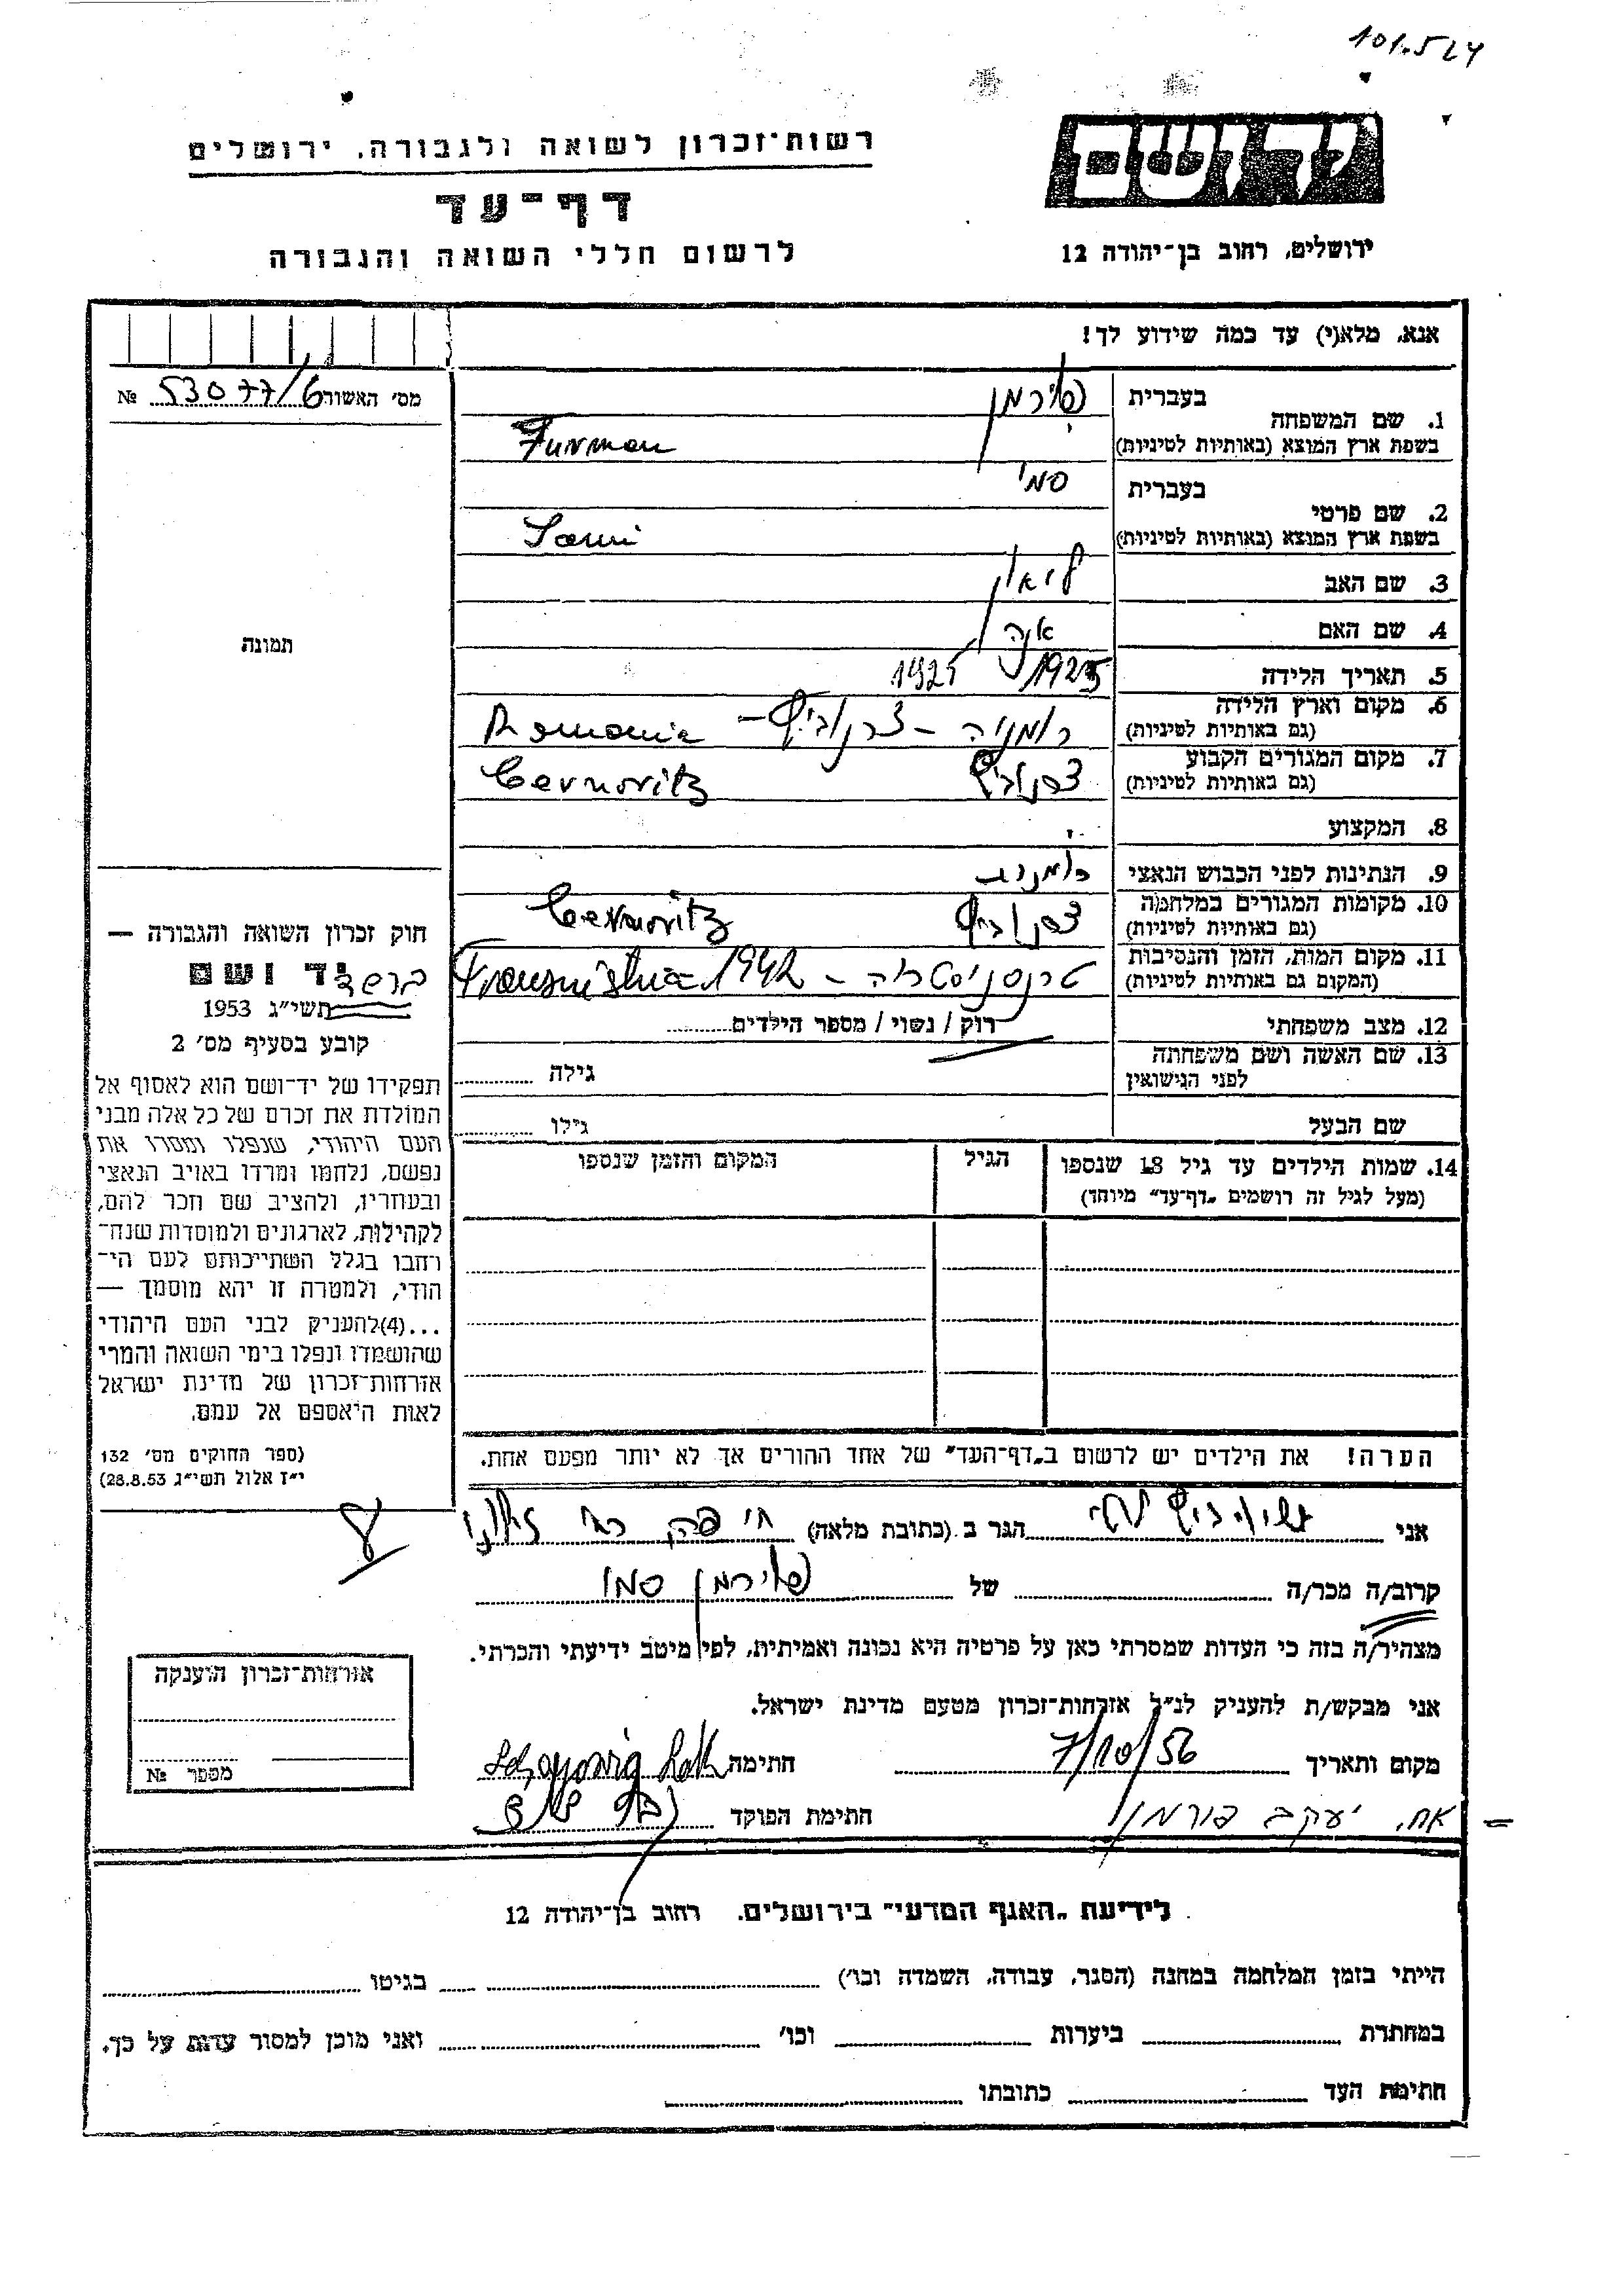 101.524
רשות־זכרון לשואה ולגבורה, ירושלים
יד ושם
דף־עד
לרשום חללי השואה והגבורה
ירושלים, רחוב בן־יהודה 12
אנא, מלא(י) עד כמה שידוע לך!
מס׳ האשור 53077/6 №
1. שם המשפחה
בעברית פורמן
בשפת ארץ המוצא (באותיות לטיניות) Furman
2. שם פרטי
בעברית סמי
בשפת ארץ המוצא (באותיות לטיניות) Sami
3. שם האב ליאון
4. שם האם אנה
תמונה
5. תאריך הלידה 1925 1925
6. מקום וארץ הלידה
(גם באותיות לטיניות) רומניה – צרנוביץ – Romania
7. מקום המגורים הקבוע
(גם באותיות לטיניות) צרנוביץ Cernovitz
8. המקצוע
9. הנתינות לפני הכבוש הנאצי
10. מקומות המגורים במלחמה
(גם באותיות לטיניות) צרנוביץ Cernovitz
11. מקום המות, הזמן והנסיבות
(המקום גם באותיות לטיניות) טרנסניסטריה – 1942 Transnistria
12. מצב משפחתי רוק / נשוי / מספר הילדים
13. שם האשה ושם משפחתה
לפני הנישואין גילה
שם הבעל גילו
14. שמות הילדים עד גיל 18 שנספו
(מעל לגיל זה רושמים „דף־עד״ מיוחד)
הגיל
המקום והזמן שנספו
חוק זכרון השואה והגבורה —
יד ושם
תשי״ג 1953
קובע בסעיף מס׳ 2
תפקידו של יד־ושם הוא לאסוף אל
המולדת את זכרם של כל אלה מבני
העם היהודי, שנפלו ומסרו את
נפשם, נלחמו ומרדו באויב הנאצי
ובעוזריו, ולהציב שם וזכר להם,
לקהילות, לארגונים ולמוסדות שנח־
רבו בגלל השתייכותם לעם הי־
הודי, ולמטרה זו יהא מוסמך —
...(4) להעניק לבני העם היהודי
שהושמדו ונפלו בימי השואה והמרי
אזרחות־זכרון של מדינת ישראל
לאות היאספם אל עמם.
(ספר החוקים מס׳ 132
י״ז אלול תשי״ג 28.8.53)
הערה! את הילדים יש לרשום ב„דף־העד״ של אחד ההורים אך לא יותר מפעם אחת.
אני הגר ב (כתובת מלאה) חיפה
קרוב/ה מכר/ה של פורמן סמי
מצהיר/ה בזה כי העדות שמסרתי כאן על פרטיה היא נכונה ואמיתית, לפי מיטב ידיעתי והכרתי.
אני מבקש/ת להעניק לנ״ל אזרחות־זכרון מטעם מדינת ישראל.
מקום ותאריך 7/10/56 חתימה
אח, יעקב פורמן חתימת הפוקד
אזרחות־זכרון הוענקה
מספר №
לידיעת „האגף המדעי״ בירושלים. רחוב בן־יהודה 12
הייתי בזמן המלחמה במחנה (הסגר, עבודה, השמדה וכו׳) בגיטו
במחתרת ביערות וכו׳ ואני מוכן למסור עדות על כך.
חתימת העד כתובתו